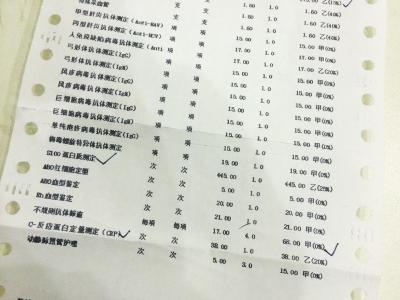 支 1.60 1.0 1.60
甲型肝炎抗体测定(Anti-HAV) 项 15.00 1.0 15.00 甲(0%)
丙型肝炎抗体测定(Anti-HCV) 项 17.00 1.0 17.00
人免疫缺陷病毒抗体测定(Anti 项
弓形体抗体测定(IgG) 项 15.00 1.0 15.00 甲(0%)
弓形体抗体测定(IgM) 项 15.00 1.0 15.00 甲(0%)
风疹病毒抗体测定(IgG) 项 15.00 1.0 15.00 甲(0%)
风疹病毒抗体测定(IgM) 项 15.00 1.0 15.00 甲(0%)
巨细胞病毒抗体测定(IgG) 项 15.00 1.0 15.00 甲(0%)
巨细胞病毒抗体测定(IgM) 项 15.00 1.0 15.00 甲(0%)
单纯疱疹病毒抗体测定(IgG) 项 15.00 1.0 15.00 甲(0%)
病毒螺旋特异体抗体测定 项 19.00 1.0 19.00 甲(0%)
S100蛋白质测定 次 445.00 1.0 445.00 乙(20%)
ABO红细胞定型 次 5.00 1.0 5.00 甲(0%)
ABO血型鉴定 次 20.00 1.0 20.00 甲(0%)
Rh血型鉴定 次 21.00 1.0 21.00 甲(0%)
不规则抗体筛查 每项 17.00 4.0 68.00 甲(0%)
C-反应蛋白定量测定(CRP) 次 38.00 1.0 38.00 乙(20%)
动静脉置管护理 次 5.00 3.0 15.00 甲(0%)